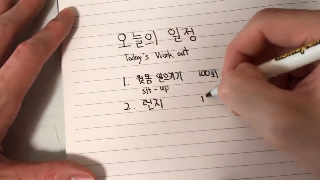 오늘의 일정
Today's Work out
1. 윗몸 일으키기 100회
sit-up
2. 런지 1